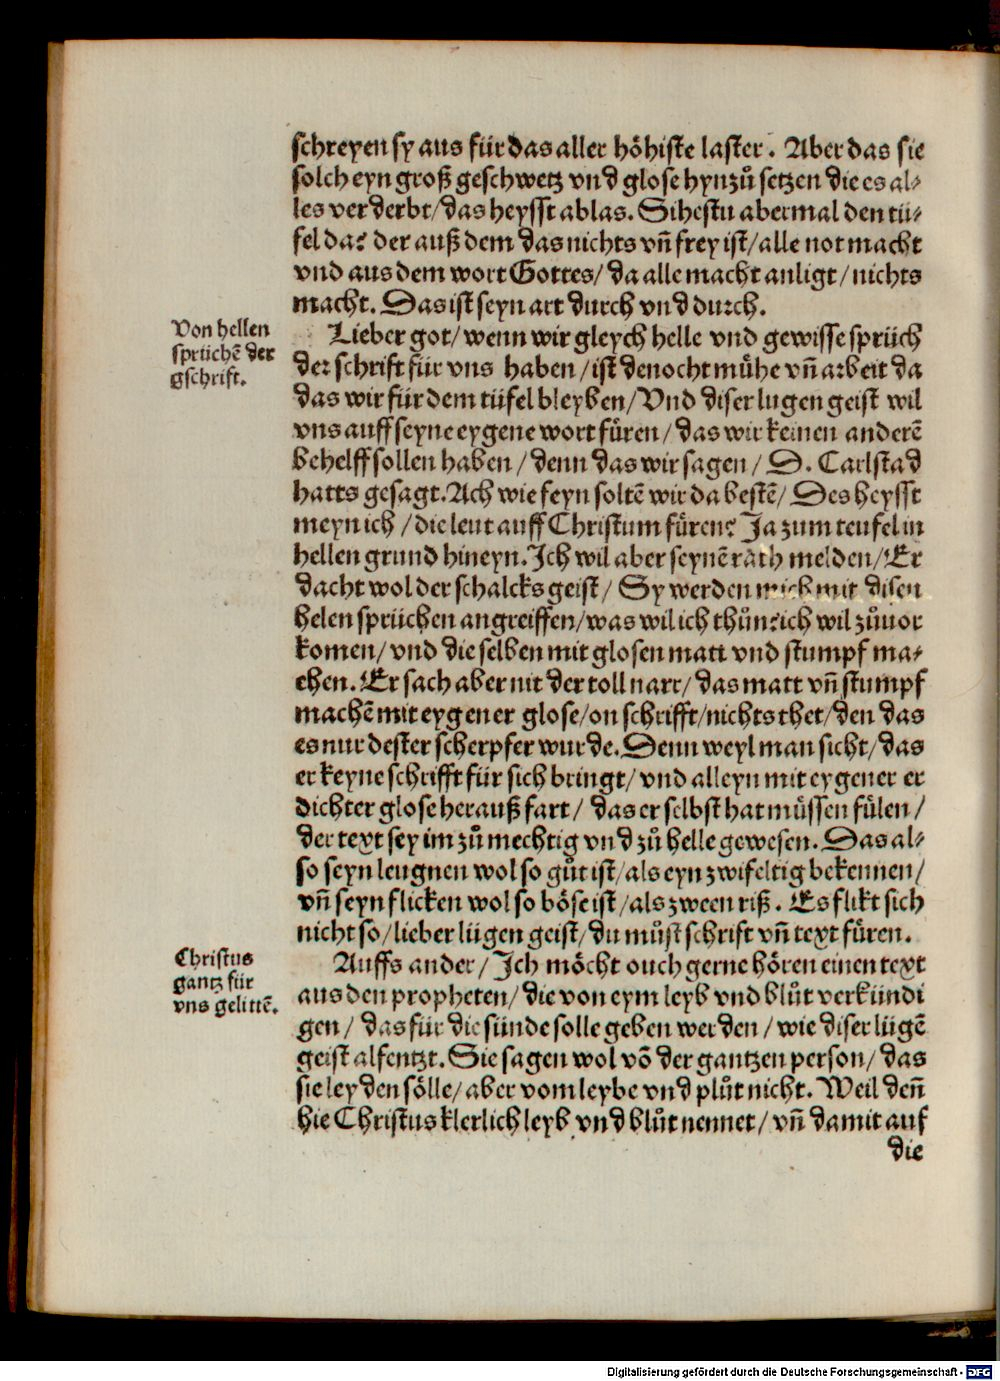 schreyen sy aus für das aller höhiste laster. Aber das sie
solch eyn groß geschwetz vnd glose hynzů setzen die es al⸗
les verderbt/das heysst ablas. Sihestu abermal den tü⸗
fel da? der auß dem das nichts vn̄ frey ist/alle not macht
vnd aus dem wort Gottes/da alle macht anligt/nichts
macht. Das ist seyn art durch vnd durch.
Von hellen
sprüchē der
gschrift.
Lieber got/wenn wir gleych helle vnd gewisse sprüch
der schrift für vns haben/ist denocht mühe vn̄ arbeit da
das wir für dem tüfel bleyben/Vnd diser lugen geist wil
vns auff seyne eygene wort füren/das wir keinen anderē
behelff sollen haben/denn das wir sagen/D. Carlstad
hatts gesagt. Ach wie feyn soltē wir da bestē/Des heysst
meyn ich/die leut auff Christum füren? Ja zum teufel in
hellen grund hineyn. Ich wil aber seynē rath melden/Er
dacht wol der schalcks geist/Sy werden mich mit disen
helen sprüchen angreiffen/was wil ich thůn? ich wil zůuor
komen/vnd die selben mit glosen matt vnd stumpf ma⸗
chen. Er sach aber nit der toll narr/das matt vn̄ stumpf
machē mit eygener glose/on schrifft/nichts thet/den das
es nur dester scherpfer wurde. Denn weyl man sicht/das
er keyne schrifft für sich bringt/vnd alleyn mit eygener er
dichter glose herauß fart/das er selbst hat müssen fülen/
der text sey im zů mechtig vnd zů helle gewesen. Das al⸗
so seyn leugnen wol so gůt ist/als eyn zwifeltig bekennen/
vn̄ seyn flicken wol so böse ist/als zween riß. Es flikt sich
nicht so/lieber lügen geist/du můst schrift vn̄ text füren.
Christus
gantz für
vns gelittē.
Auffs ander/Ich möcht ouch gerne hören einen text
aus den propheten/die von eym leyb vnd blůt verkündi
gen/das für die sünde solle geben werden/wie diser lügē
geist alfentzt. Sie sagen wol vō der gantzen person/das
sie leyden sölle/aber vom leybe vnd plůt nicht. Weil den̄
hie Christus klerlich leyb vnd blůt nennet/vn̄ damit auf
die
Digitalisierung gefördert durch die Deutsche Forschungsgemeinschaft - DFG